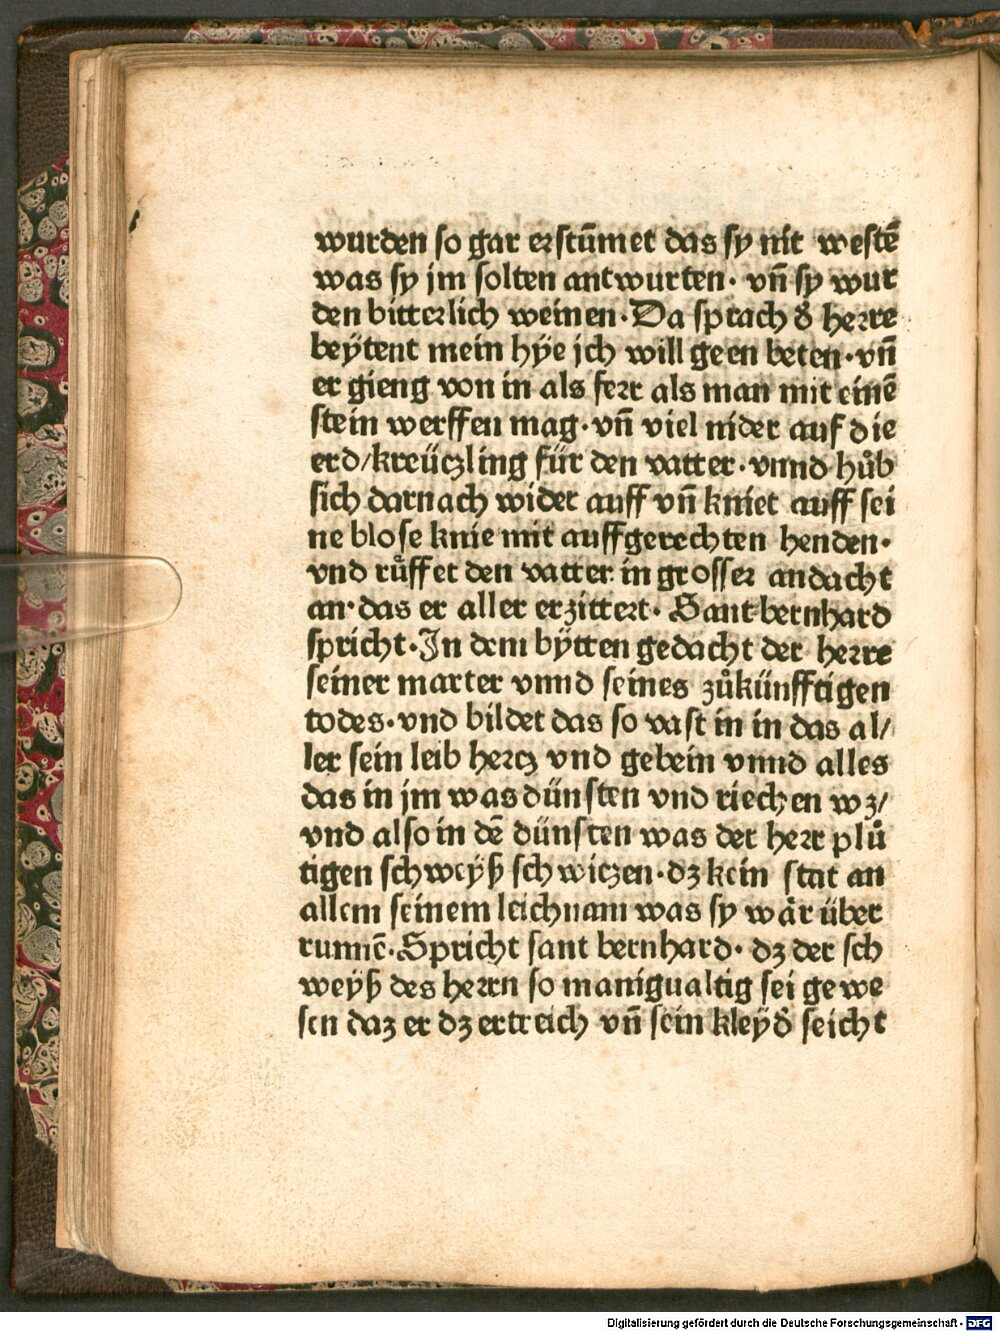 wurden so gar erstūmet das sy nit westē
was sy jm solten antwurten· vn̄ sy wur
den bitterlich weinen·Da sprach d̕ herre
beÿtent mein hÿe jch will geen beten·vn̄
er gieng von in als ferr als man mit einē
stein werffen mag·vn̄ viel nider auf die
erd/kreüczling für den vatter·vnnd hůb
sich darnach wider auff vn̄ kniet auff sei
ne blose knie mit auffgerechten henden·
vnd růffet den vatter in grosser andacht
an·das er aller erzittert· Sant bernhard
spricht·In dem bÿtten gedacht der herre
seiner marter vnnd seines zůkünfftigen
todes·vnd bildet das so vast in in das al/
ler sein leib hercz vnd gebein vnnd alles
das in jm was dünsten vnd riechen wz/
vnd also in dē dünsten was der herr plů
tigen schweÿß schwiczen·dz kein stat an
allem seinem leichnam was sy wår über
runnē·Spricht sant bernhard· dz der sch
weÿß des herrn so manigualtig sei gewe
sen daz er dz ertreich vn̄ sein kleÿd̕ seicht
Digitalisierung gefördert durch die Deutsche Forschungsgemeinschaft - DFG